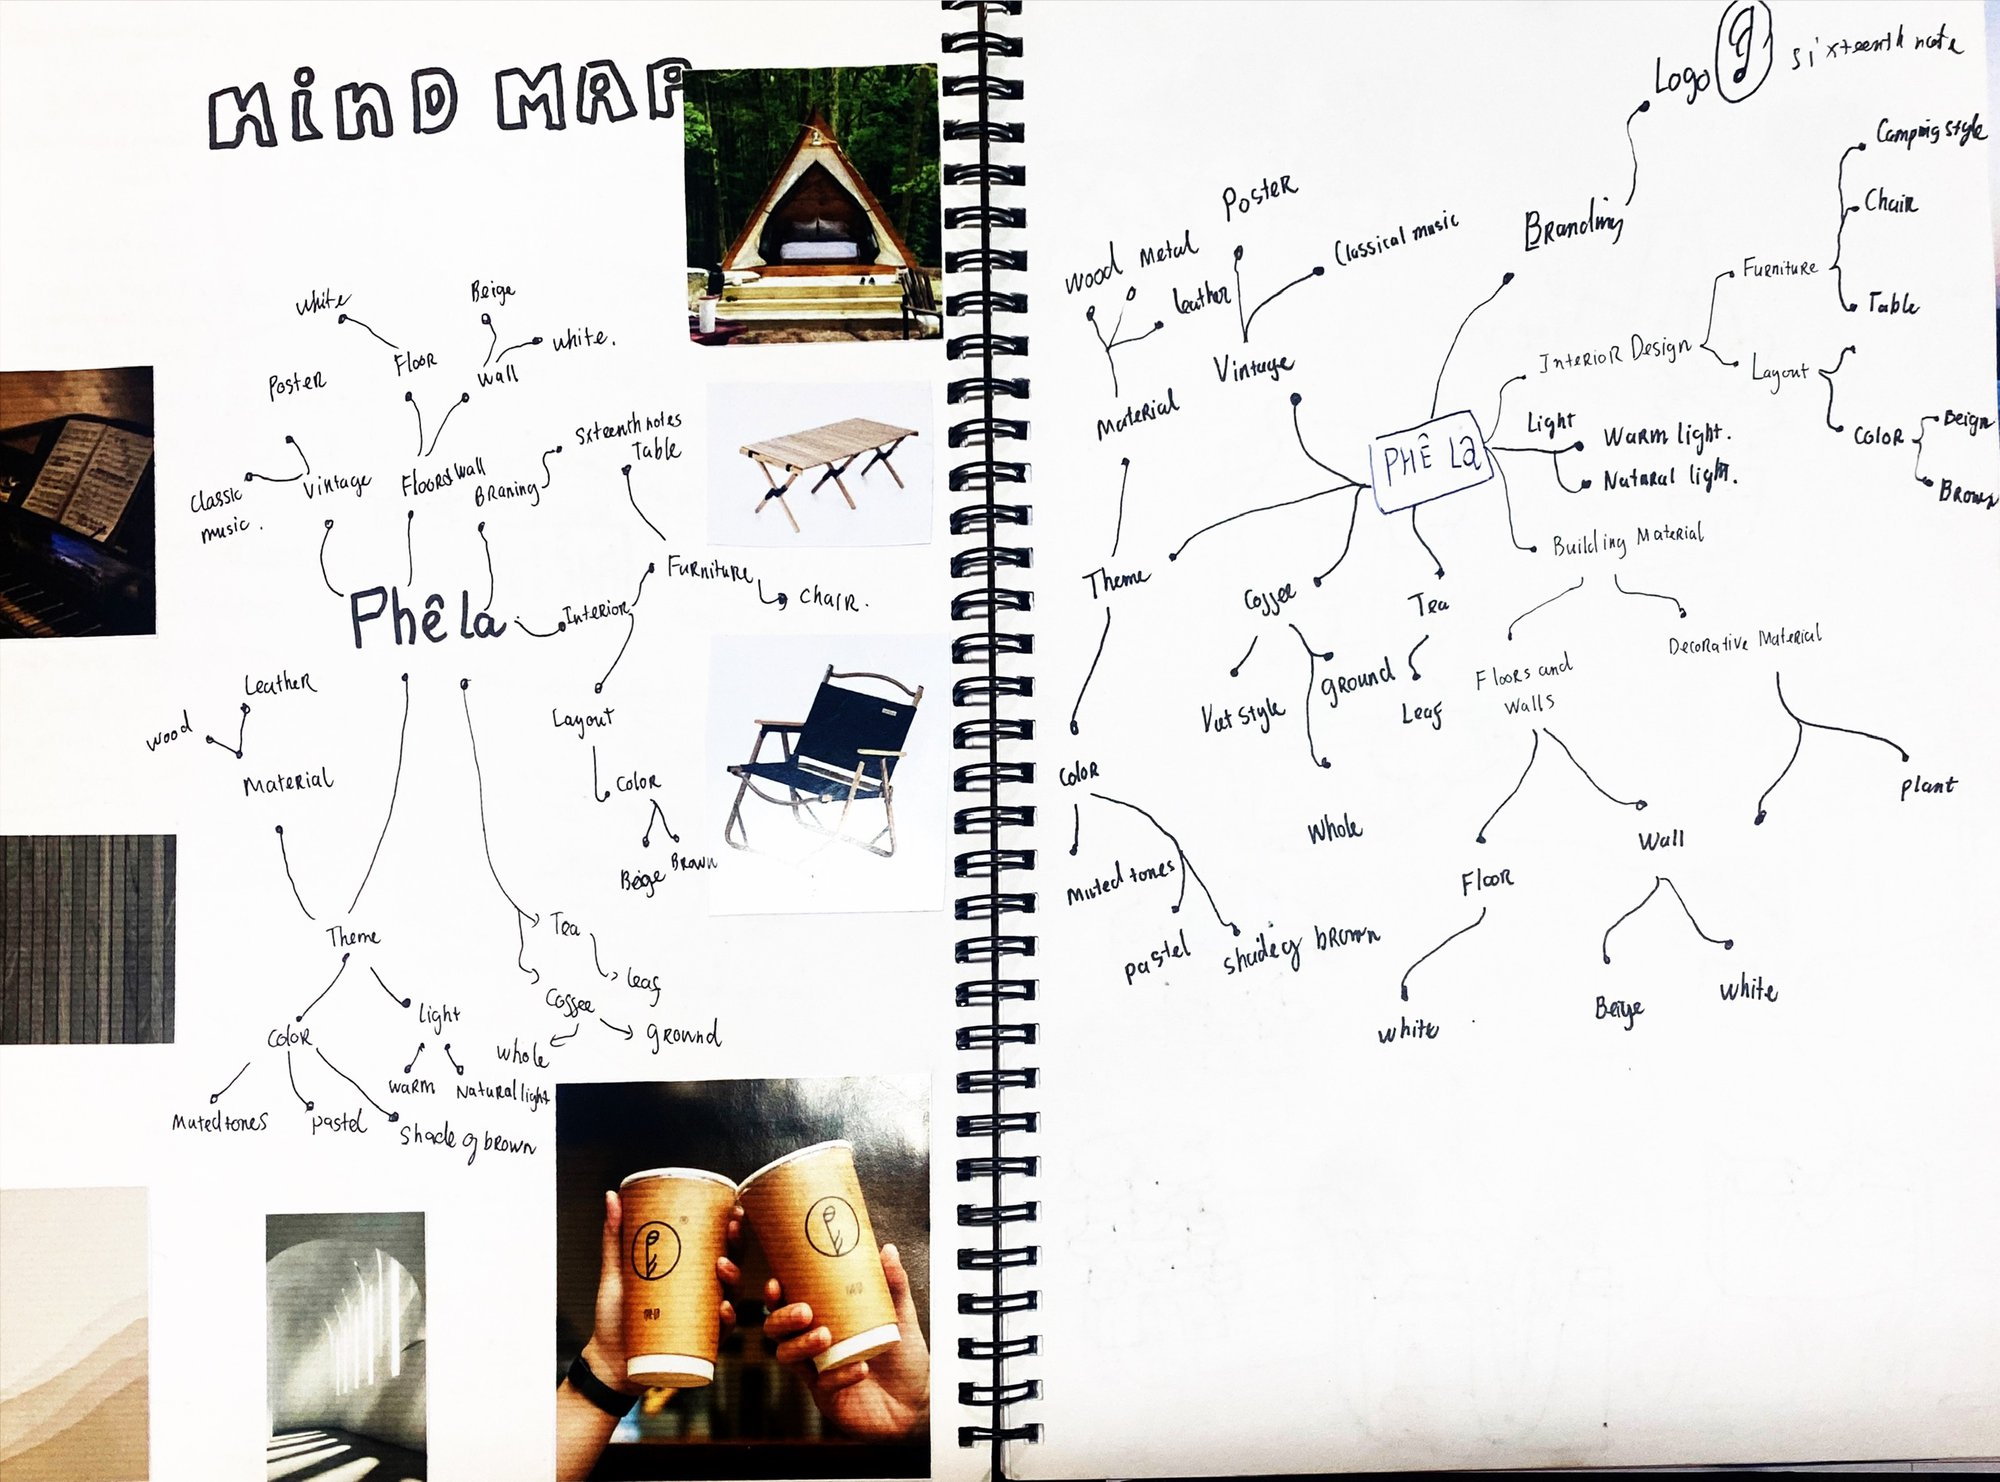 MinD MAP
White
Beige
Floor
Wall
white.
Poster
Vintage
Classic
music.
Floor & Wall
Braning
Sxteenth notes
Table
Phê la
Interior
Furniture
Chair.
Layout
Color
Beige
Brown
Leather
Wood
Material
Theme
Color
Light
Warm
Natural light
Muted tones
Pastel
Shade of brown
Tea
Leaf
Coffee
Whole
Ground
Logo
sixteenth note
Branding
Camping style
Chair
Table
Furniture
Interior Design
Layout
Color
Beign
Brown
Light
Warm light.
Natural light.
PHÊ La
Poster
Classical music
Vintage
Wood
Metal
Leather
Material
Theme
Color
Muted tones
Pastel
Shade of brown
Coffee
Viet style
Ground
Whole
Tea
Leaf
Building Material
Floors and
Walls
Decorative Material
Plant
Floor
Wall
White
Beige
White